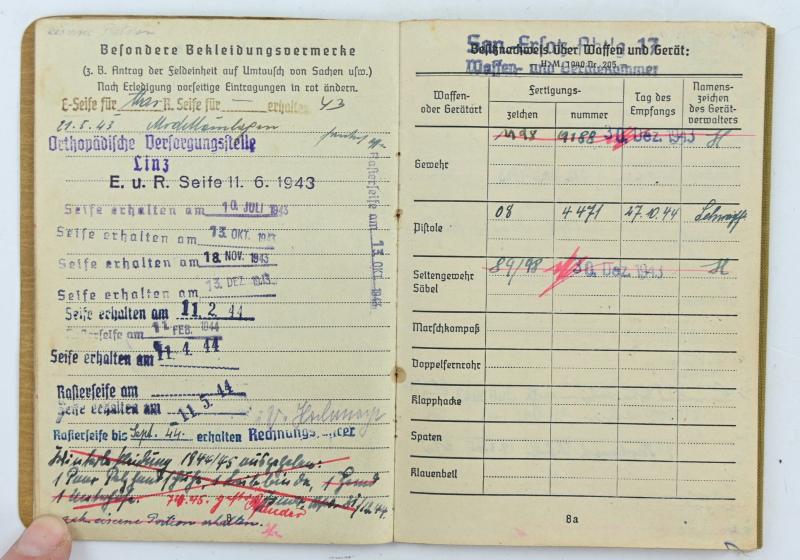 Besondere Bekleidungsvermerke
(z. B. Antrag der Feldeinheit auf Umtausch von Sachen usw.)
Nach Erledigung vorseitige Eintragungen in rot ändern.
E-Seife für März R. Seife für — erhalten 43
21.5.43 Modelleinlagen
Orthopädische Versorgungsstelle
Linz
E. u R. Seife 11. 6. 1943
Seife erhalten am 10. JULI 1943
Seife erhalten am 13. OKT. 1943
Seife erhalten am 18. NOV. 1943
Seife erhalten am 13. DEZ. 1943
Seife erhalten am 11. 2. 44
Rasierseife am 11. FEB. 1944
Seife erhalten am 11. 4. 44
Rasierseife am
Seife erhalten am 11. 5. 44
Rasierseife bis Sept. 44. erhalten
Winterbekleidung 1944/45 ausgegeben:
1 Paar Pelzhandschuhe, 1 Leibbinde, 1 Hemd
1 Unterhose.
eiserne Portion erhalten.
8
Rasierseife am 13. OKT. 1943
San. Ersatz Abtlg. 17
Besitznachweis über Waffen und Gerät:
H. M. 1940 Nr. 205
Waffen- und Gerätekammer
Waffen- oder Gerätart
Fertigungs-
zeichen
nummer
Tag des Empfangs
Namenszeichen des Gerätverwalters
Gewehr 98 9188 30. Dez. 1943
Pistole 08 4471 27.10.44
Seitengewehr 84/98 30. Dez. 1943
Säbel
Marschkompaß
Doppelfernrohr
Klapphacke
Spaten
Klauenbeil
8a